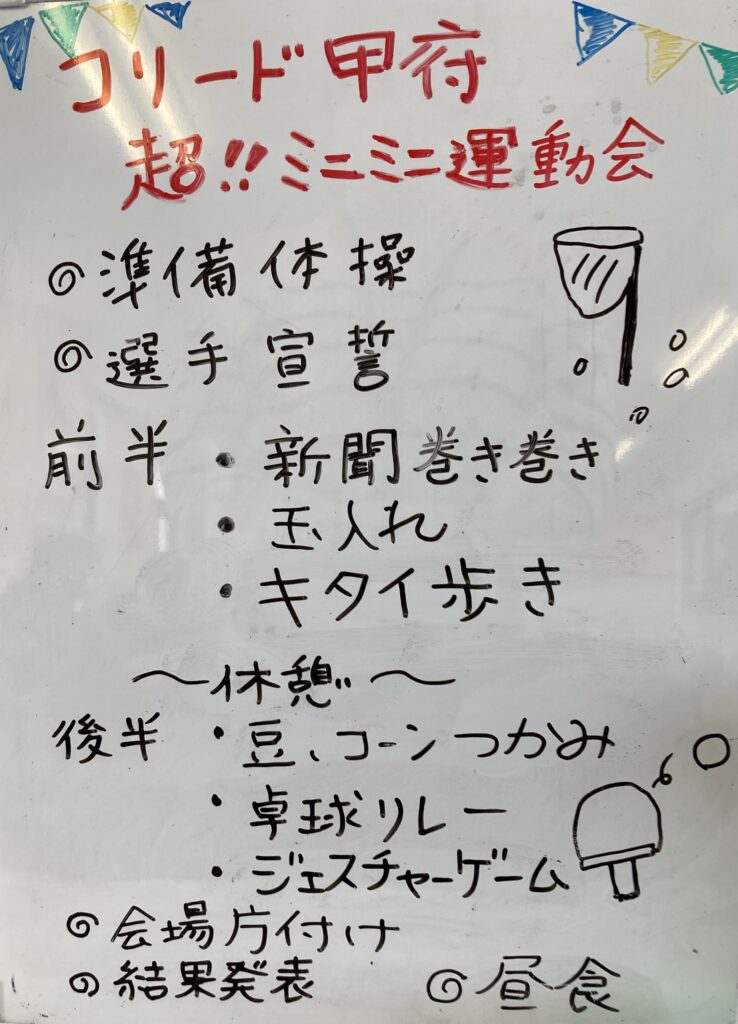 コリード甲府
超!!ミニミニ運動会
◎準備体操
◎選手宣誓
前半 ・新聞巻き巻き
・玉入れ
・キタイ歩き
～休憩～
後半 ・豆、コーンつかみ
・卓球リレー
・ジェスチャーゲーム
◎会場片付け
◎結果発表 ◎昼食